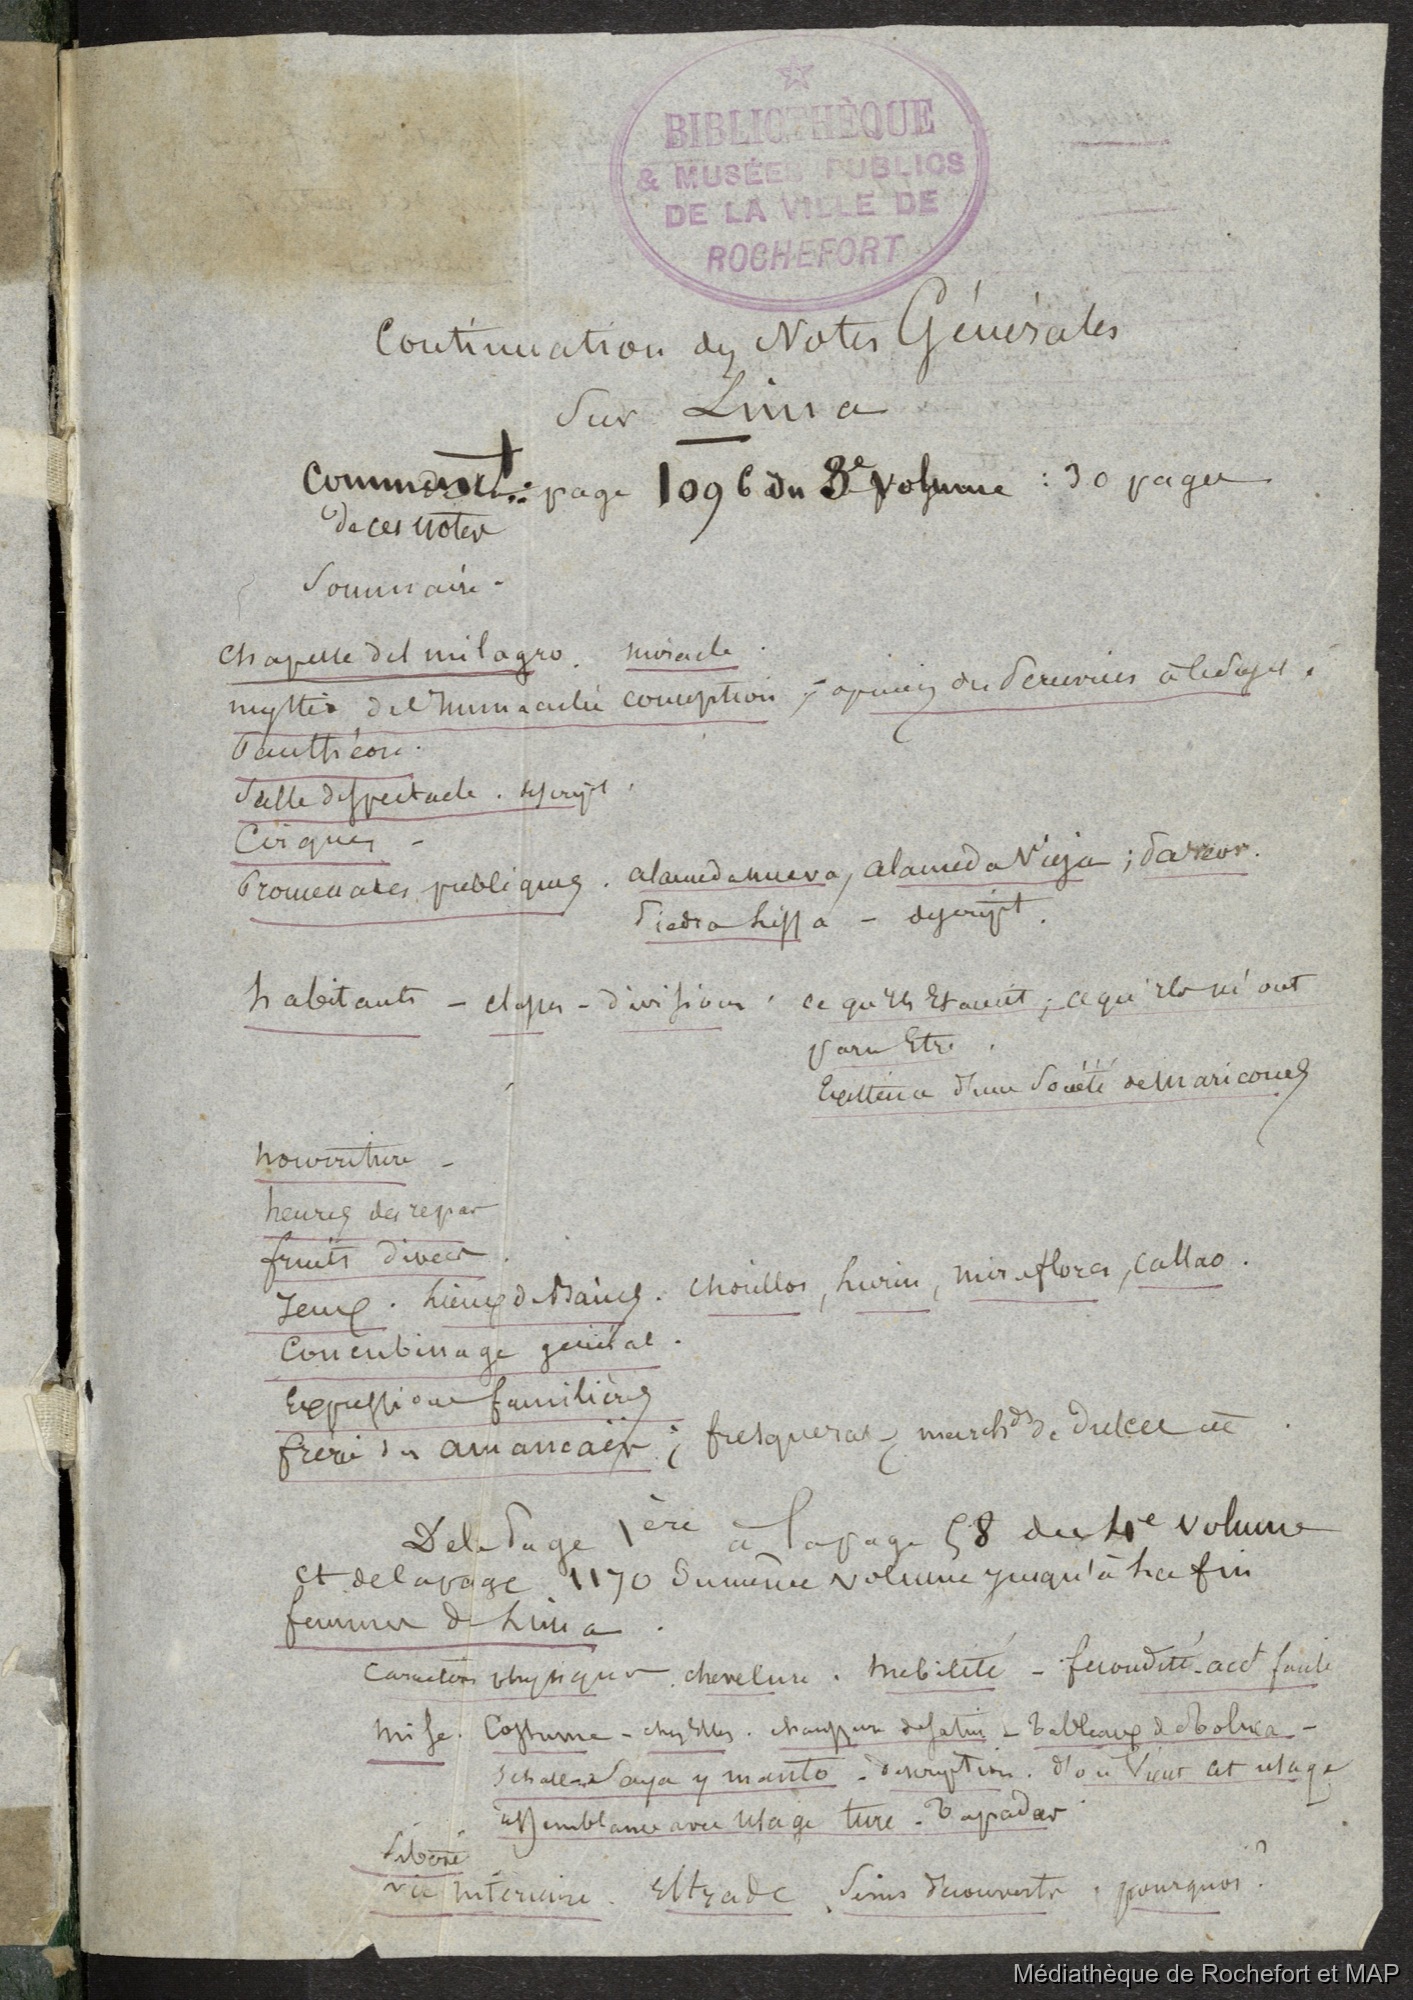 BIBLIOTHÈQUE
& MUSÉES PUBLICS
DE LA VILLE DE
ROCHEFORT
Continuation des Notes Générales
Sur Lima
Commencent: page 1096 du 3e volume : 30 pages
de ces notes
Sommaire -
Chapelle del milagro. miracle.
mystère de l'Immaculée conception ; opinion des Péruviens à ce sujet.
Panthéon.
Salle de spectacle. descript.
Cirques -
Promenades publiques. alameda nueva, alameda Vieja ;
Piedra lissa - descript.
habitants - classes - divisions. ce qu'ils Etaient ; ce qu'ils m'ont
paru Etre.
Existence d'une Société de Maricones
nourriture -
heures des repas
fruits divers.
Jeux. Lieux de Bains. Chorillos, Lurin, miraflores, Callao.
Concubinage général.
Expressions familières
des amancaës ; fresqueras, march.des de dulces etc.
De la Page 1ère à la page 58 du 4e volume
et de la page 1170 du même volume jusqu'à la fin
femmes de Lima.
Caractères physiques. chevelure. nubilité - fécondité - acct facile
mise. Costume - chez Elles. chaussure de satin - Tableaux de
Saya y manto - description. d'où vient cet usage
ressemblance avec usage turc. Tapadas
Liberté
vie intérieure. Estrade. Seins découverts. pourquoi ?
Médiathèque de Rochefort et MAP